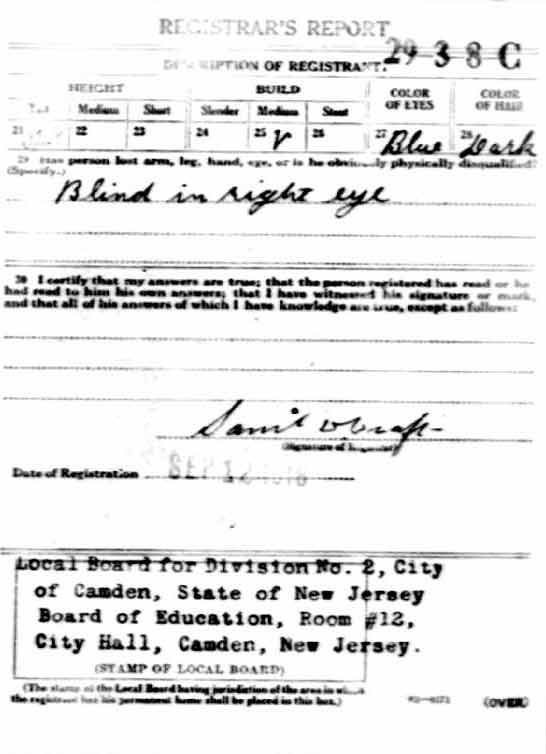 REGISTRAR'S REPORT
29 3 8 C
DESCRIPTION OF REGISTRANT.
HEIGHT BUILD COLOR OF EYES COLOR OF HAIR
Tall Medium Short Slender Medium Stout
21 22 23 24 25 26 27 Blue 28 Dark
29 Has person lost arm, leg, hand, eye, or is he obviously physically disqualified?
(Specify.)
Blind in right eye
30 I certify that my answers are true; that the person registered has read or has
had read to him his own answers; that I have witnessed his signature or mark,
and that all of his answers of which I have knowledge are true, except as follows:
(Signature of Registrar)
Date of Registration SEP 12 1918
Local Board for Division No. 2, City
of Camden, State of New Jersey
Board of Education, Room #12,
City Hall, Camden, New Jersey.
(STAMP OF LOCAL BOARD)
(The stamp of the Local Board having jurisdiction of the area in which
the registrant has his permanent home shall be placed in this box.)
(OVER)